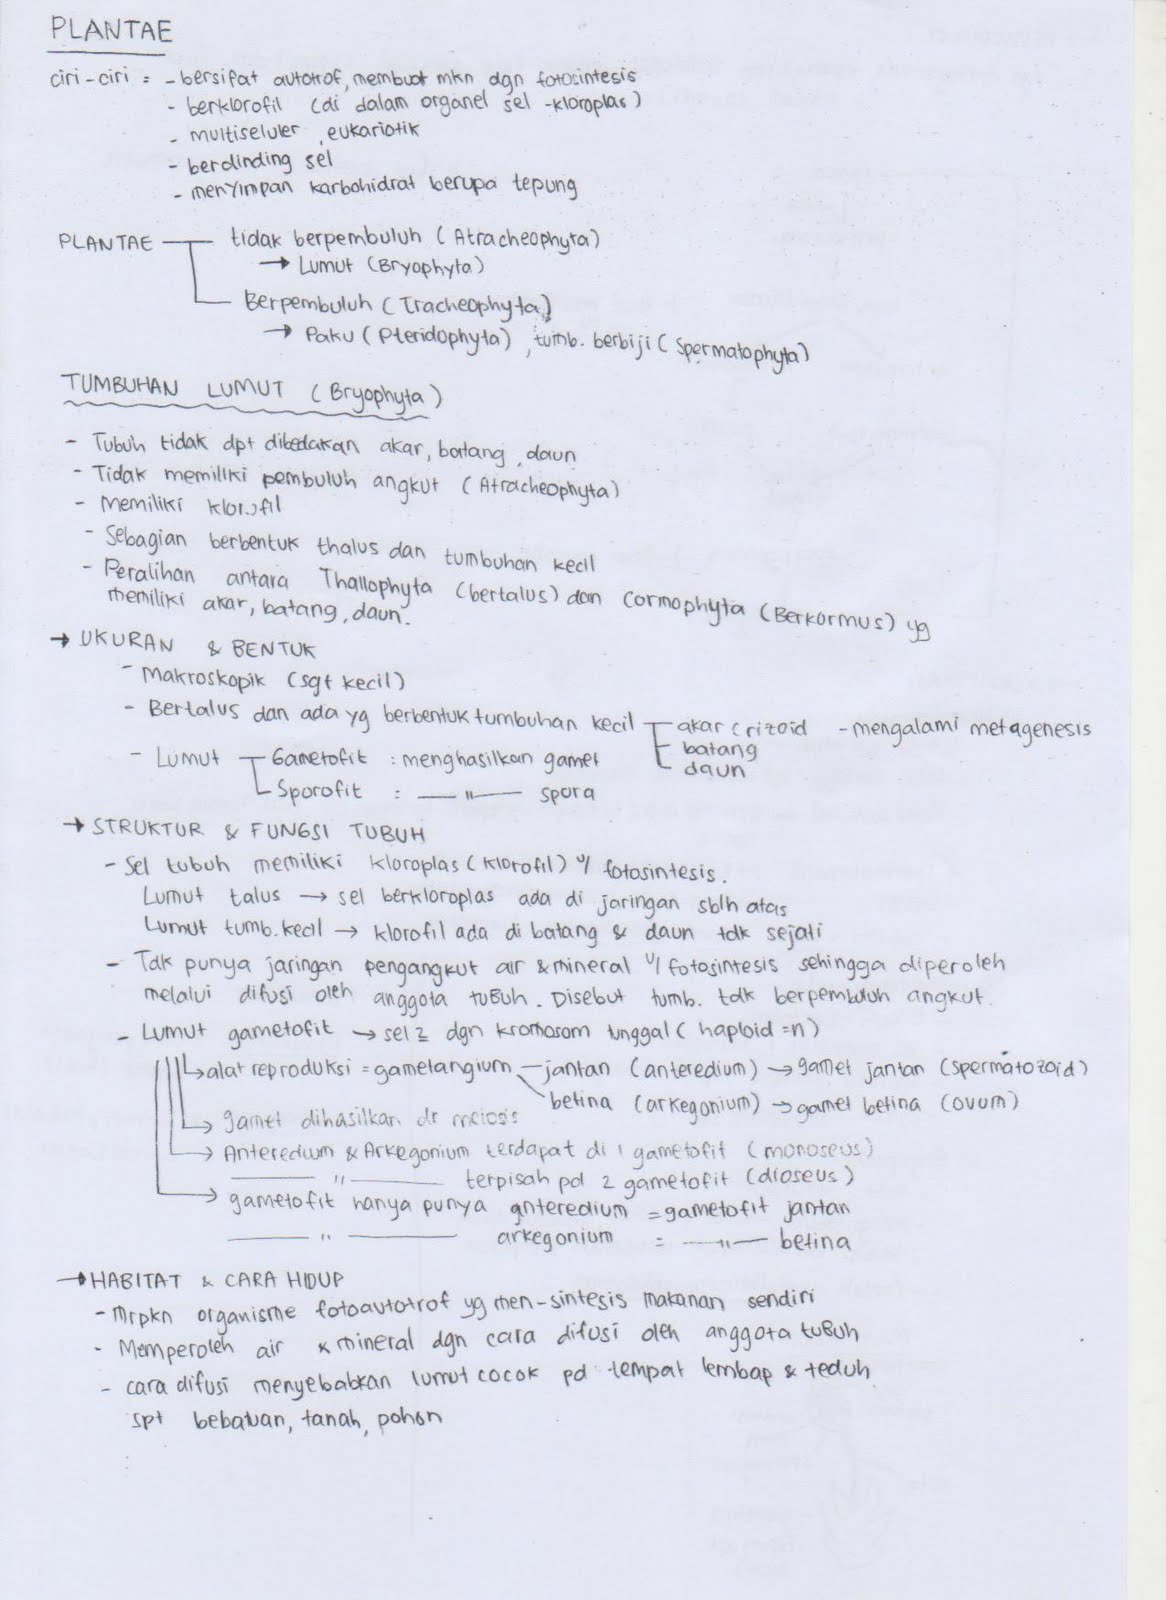 PLANTAE
ciri-ciri = - bersifat autotrof, membuat mkn dgn fotosintesis
- berklorofil (di dalam organel sel - kloroplas)
- multiseluler, eukariotik
- berdinding sel
- menyimpan karbohidrat berupa tepung
PLANTAE — tidak berpembuluh (Atracheophyta)
→ Lumut (Bryophyta)
Berpembuluh (Tracheophyta)
→ Paku (Pteridophyta), tumb. berbiji (Spermatophyta)
TUMBUHAN LUMUT (Bryophyta)
- Tubuh tidak dpt dibedakan akar, batang, daun
- Tidak memiliki pembuluh angkut (Atracheophyta)
- Memiliki klorofil
- Sebagian berbentuk thalus dan tumbuhan kecil
- Peralihan antara Thallophyta (bertalus) dan Cormophyta (Berkormus) yg
memiliki akar, batang, daun.
→ UKURAN & BENTUK
- Makroskopik (sgt kecil)
- Bertalus dan ada yg berbentuk tumbuhan kecil — akar (rizoid - mengalami metagenesis
batang
daun
- Lumut — Gametofit : menghasilkan gamet
Sporofit : — " — spora
→ STRUKTUR & FUNGSI TUBUH
- Sel tubuh memiliki kloroplas (klorofil) u/ fotosintesis.
Lumut talus → sel berkloroplas ada di jaringan sblh atas
Lumut tumb. kecil → klorofil ada di batang & daun tdk sejati
- Tdk punya jaringan pengangkut air & mineral u/ fotosintesis sehingga diperoleh
melalui difusi oleh anggota tubuh. Disebut tumb. tdk berpembuluh angkut.
- Lumut gametofit → sel2 dgn kromosom tunggal (haploid = n)
→ alat reproduksi = gametangium — jantan (anteredium) → gamet jantan (spermatozoid)
betina (arkegonium) → gamet betina (ovum)
→ gamet dihasilkan dr meiosis
→ Anteredium & Arkegonium terdapat di 1 gametofit (monoseus)
— " — terpisah pd 2 gametofit (dioseus)
→ gametofit hanya punya anteredium = gametofit jantan
— " — arkegonium = — " — betina
→ HABITAT & CARA HIDUP
- Mrpkn organisme fotoautotrof yg men-sintesis makanan sendiri
- Memperoleh air & mineral dgn cara difusi oleh anggota tubuh
- cara difusi menyebabkan lumut cocok pd tempat lembap & teduh
spt bebatuan, tanah, pohon